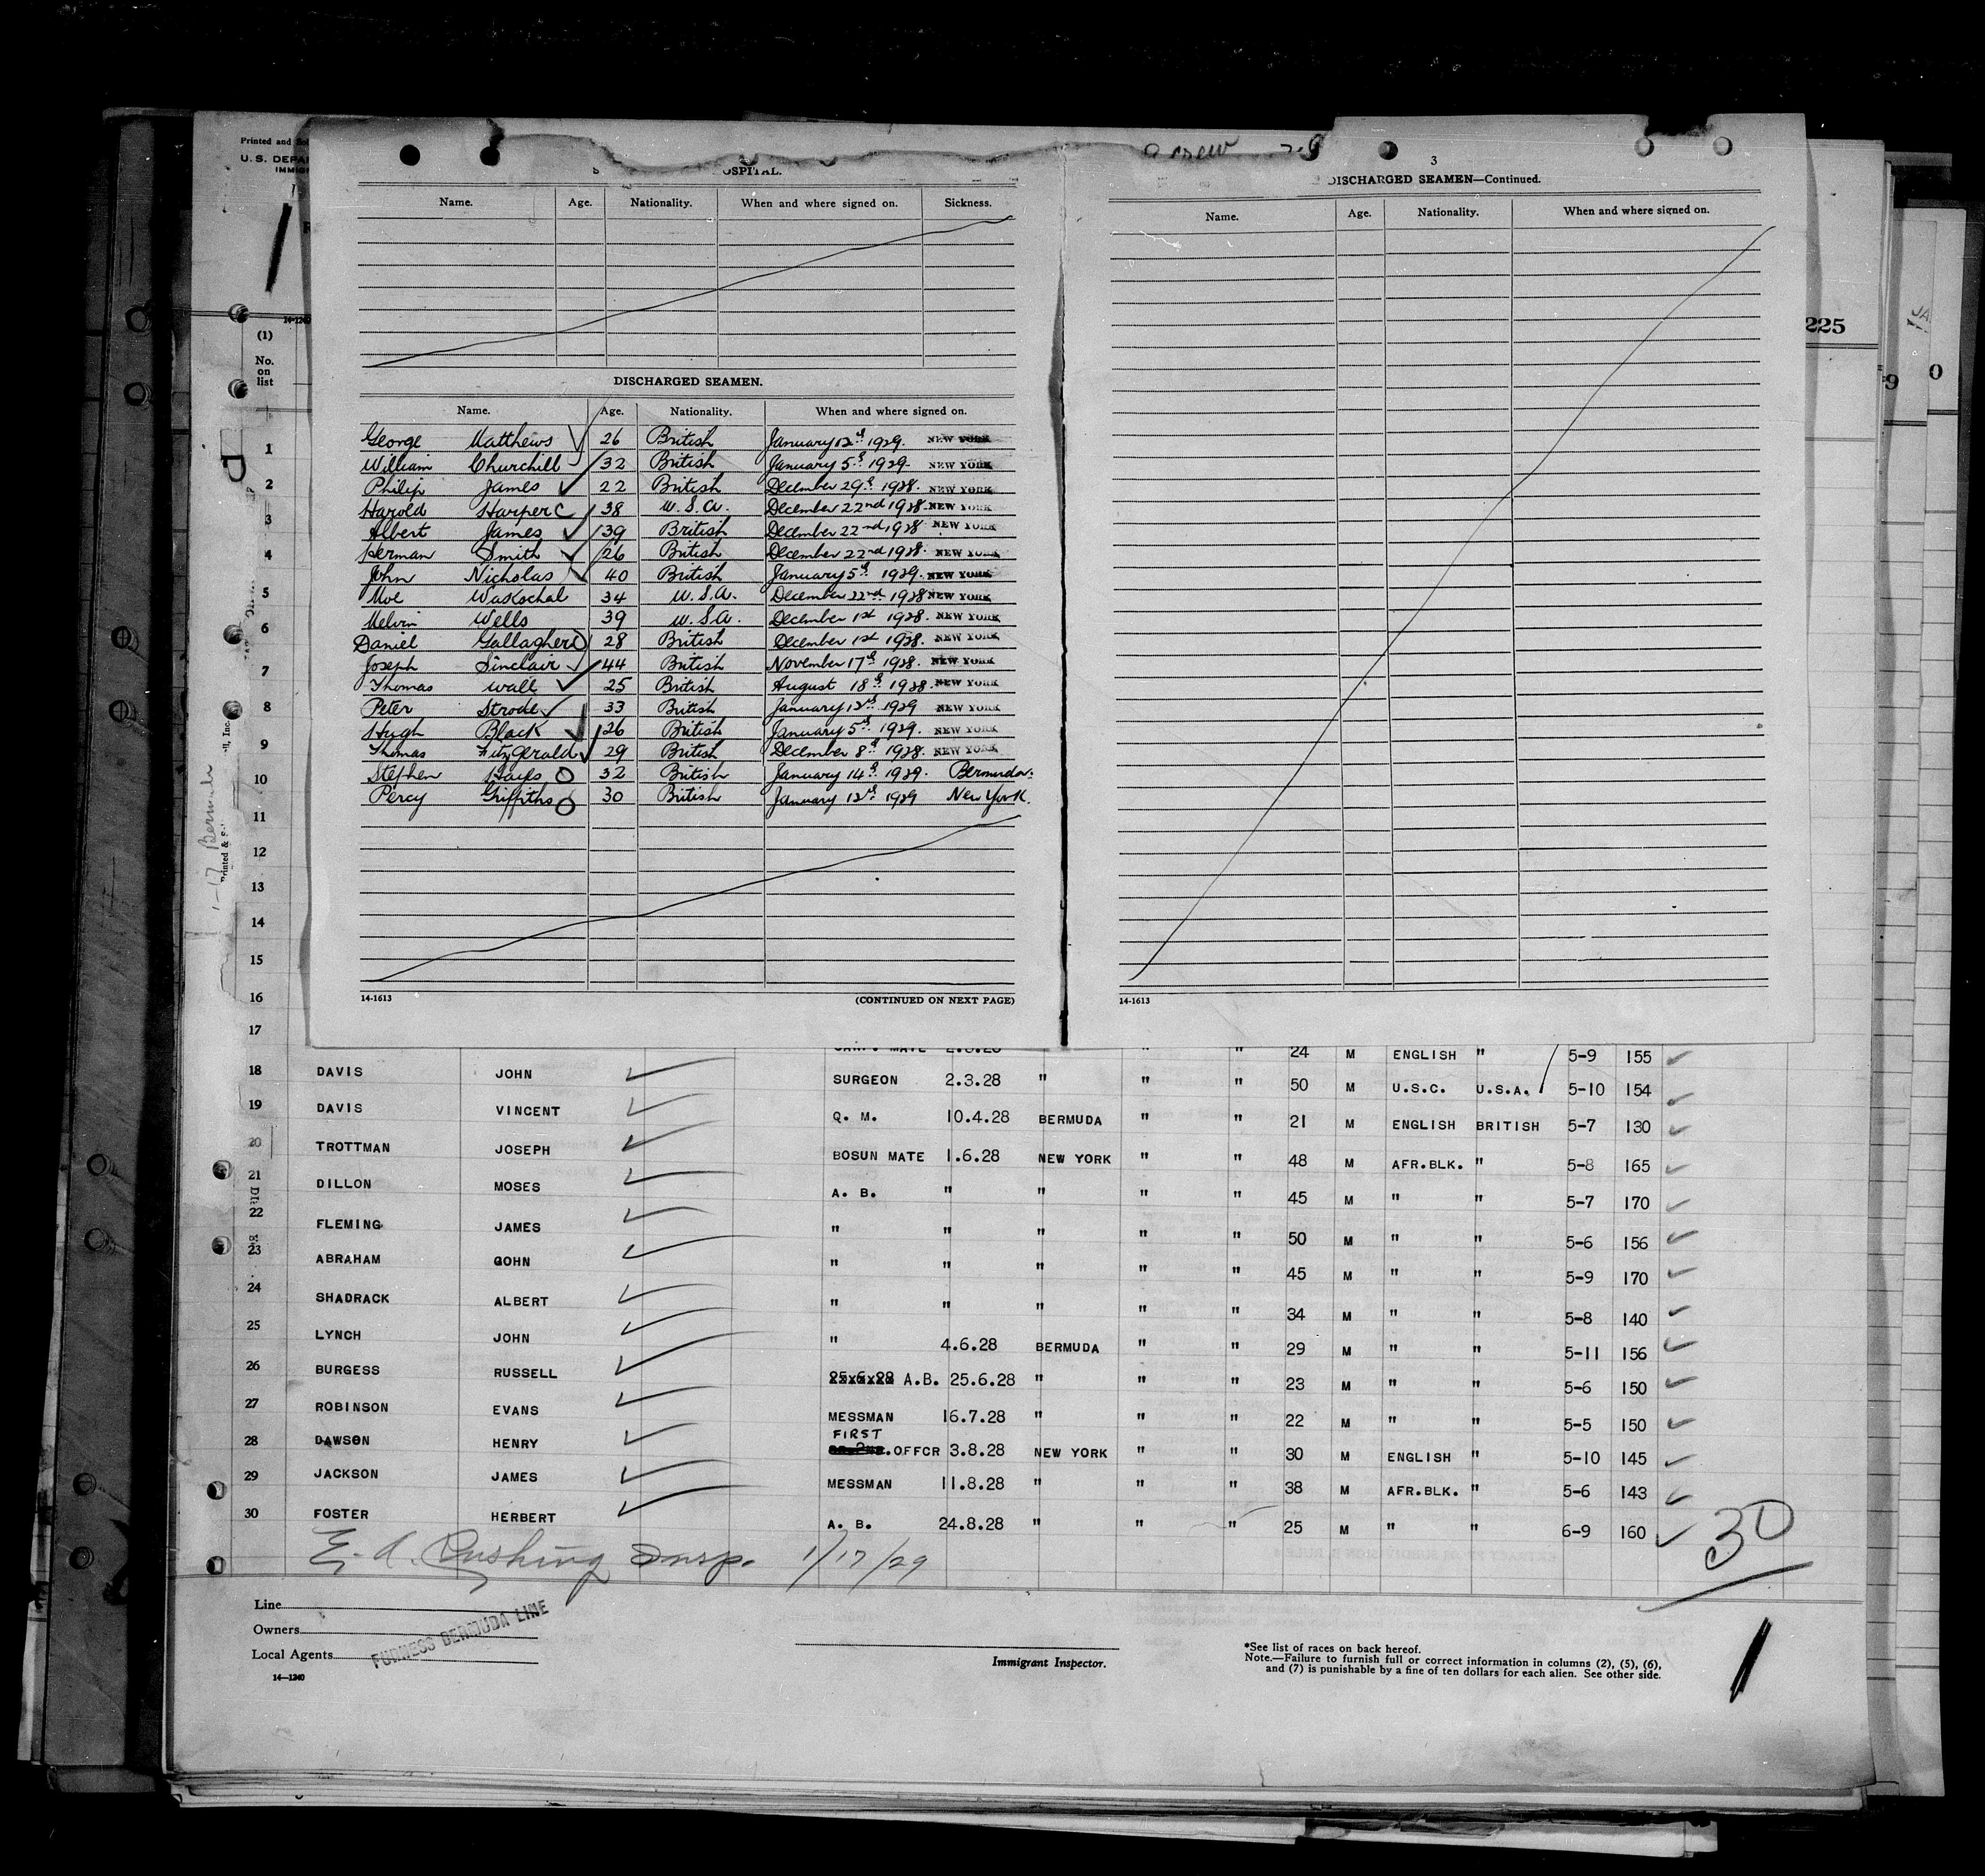 Printed and
U.S. DEPA
IMMIG
OSPITAL.
Name. Age. Nationality. When and where signed on. Sickness.
DISCHARGED SEAMEN.
Name. Age. Nationality. When and where signed on.
George Matthews 26 British January 12th 1929. NEW YORK
William Churchill 32 British January 5th 1929. NEW YORK
Philip James 22 British December 29th 1928. NEW YORK
Harold Harper C 38 U.S.A. December 22nd 1928. NEW YORK
Albert James 39 British December 22nd 1928 NEW YORK
Herman Smith 26 British December 22nd 1928. NEW YORK
John Nicholas 40 British January 5th 1929. NEW YORK
Moe Wakschal 34 U.S.A. December 22nd 1928 NEW YORK
Melvin Wells 39 U.S.A. December 1st 1928. NEW YORK
Daniel Gallagher 28 British December 1st 1928. NEW YORK
Joseph Sinclair 44 British November 17th 1928. NEW YORK
Thomas Wall 25 British August 18th 1928. NEW YORK
Peter Strode 33 British January 12th 1929 NEW YORK
Hugh Black 26 British January 5th 1929. NEW YORK
Thomas Fitzgerald 29 British December 8th 1928. NEW YORK
Stephen Hayes 32 British January 14th 1929. Bermuda.
Percy Griffiths 30 British January 12th 1929 New York.
14-1613 (CONTINUED ON NEXT PAGE)
3
DISCHARGED SEAMEN—Continued.
Name. Age. Nationality. When and where signed on.
14-1613
225
(1)
No.
on
list
1
2
3
4
5
6
7
8
9
10
11
12
13
14
15
16
17
1-17 Bermuda
24 M ENGLISH " 5-9 155
18 DAVIS JOHN SURGEON 2.3.28 " " " 50 M U.S.C. U.S.A. 5-10 154
19 DAVIS VINCENT Q. M. 10.4.28 BERMUDA " " 21 M ENGLISH BRITISH 5-7 130
20 TROTTMAN JOSEPH BOSUN MATE 1.6.28 NEW YORK " " 48 M AFR.BLK. " 5-8 165
21 DILLON MOSES A. B. " " " " 45 M " " 5-7 170
22 FLEMING JAMES " " " " " 50 M " " 5-6 156
23 ABRAHAM GOHN " " " " " 45 M " " 5-9 170
24 SHADRACK ALBERT " " " " " 34 M " " 5-8 140
25 LYNCH JOHN " 4.6.28 BERMUDA " " 29 M " " 5-11 156
26 BURGESS RUSSELL A.B. 25.6.28 " " " 23 M " " 5-6 150
27 ROBINSON EVANS MESSMAN 16.7.28 " " " 22 M " " 5-5 150
28 DAWSON HENRY FIRST OFFCR 3.8.28 NEW YORK " " 30 M ENGLISH " 5-10 145
29 JACKSON JAMES MESSMAN 11.8.28 " " " 38 M AFR.BLK. " 5-6 143
30 FOSTER HERBERT A. B. 24.8.28 " " " 25 M " " 6-9 160
30
E. A. Cushing Insp. 1/17/29
Line
Owners
Local Agents
FURNESS BERMUDA LINE
14—1240
Immigrant Inspector.
*See list of races on back hereof.
Note.—Failure to furnish full or correct information in columns (2), (5), (6),
and (7) is punishable by a fine of ten dollars for each alien. See other side.